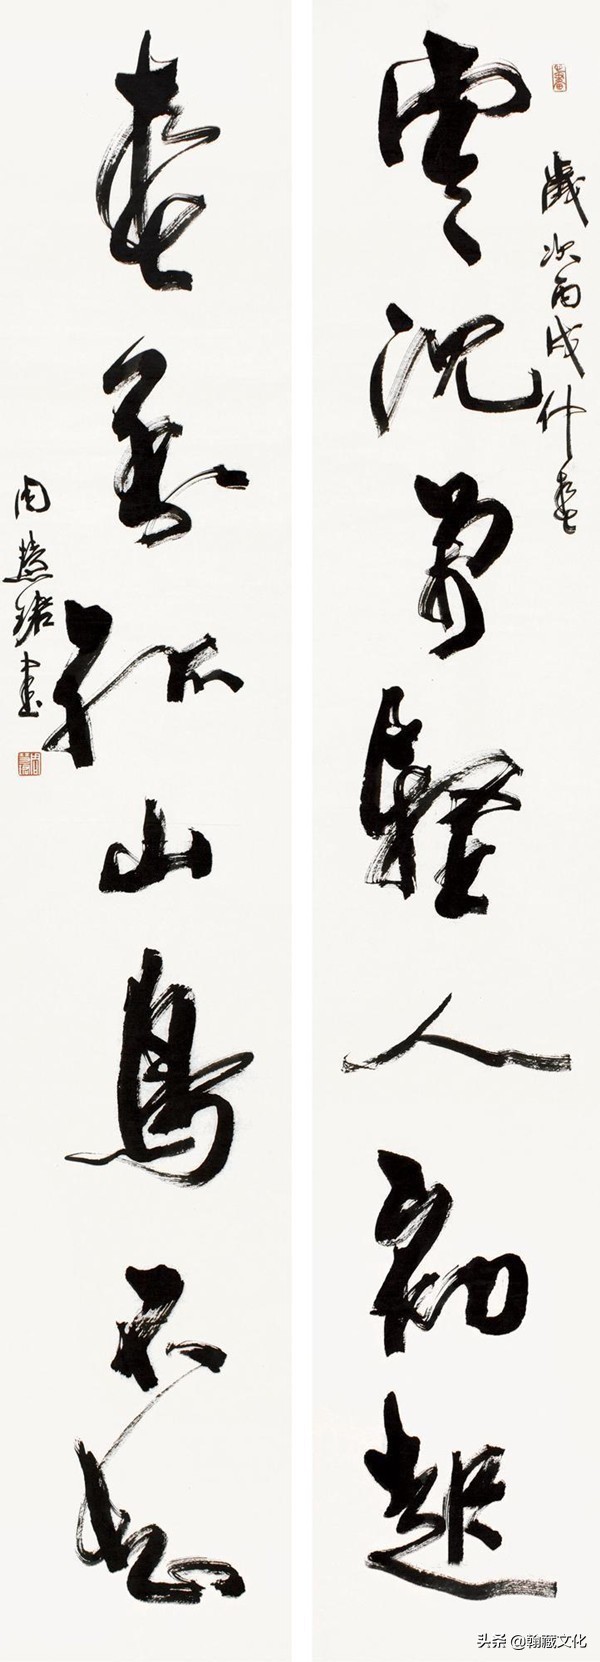 歲次丙戌仲春
雲沈人初起
春到孤山鳥不
周慧珺書
头条 @翰藏文化